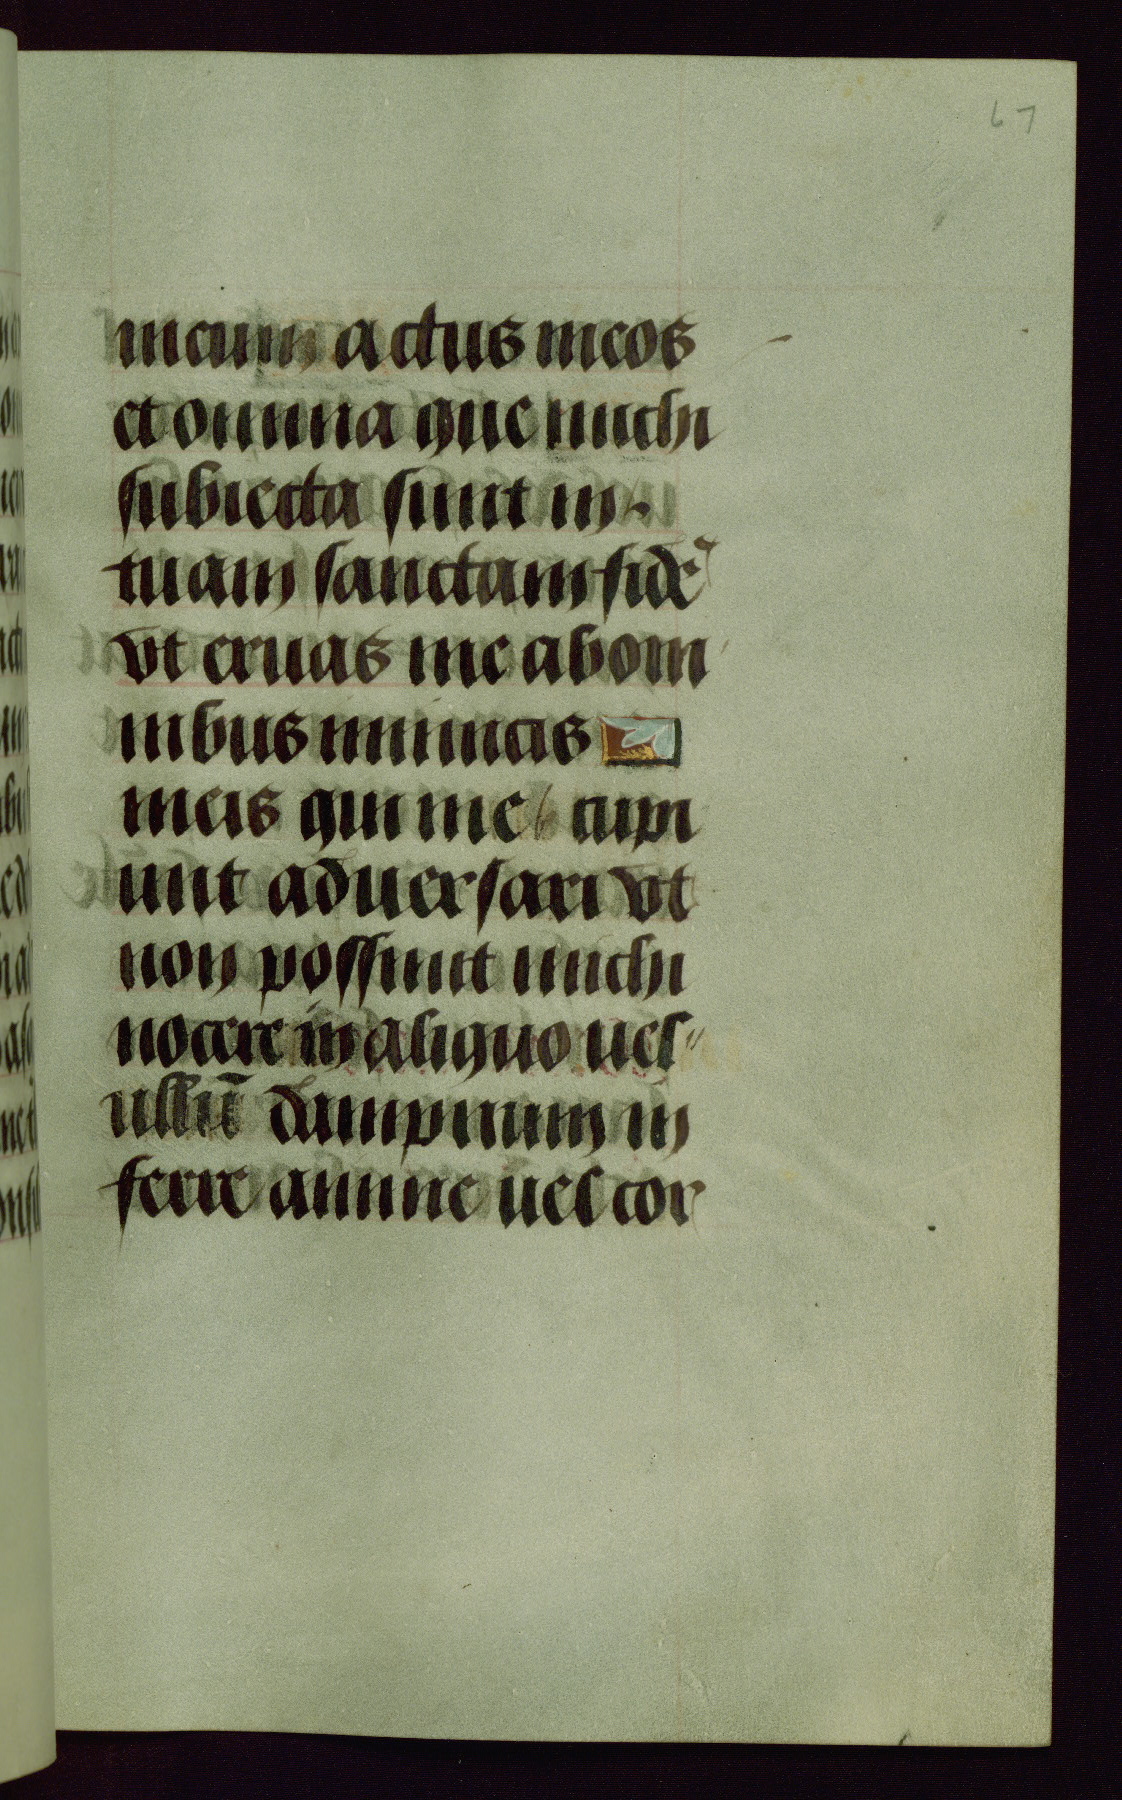 67
meam actus meos
et omnia que michi
subiecta sunt in
tuam sanctam fidē
vt eruas me ab om
nibus inimicis
meis qui me cupi
unt aduersari vt
non possint michi
nocere in aliquo uel
ullū dampnum in
ferre anime uel cor